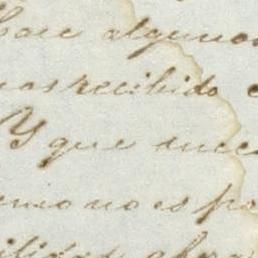 hace algunos
mos recibido
Y que suce
como no es po